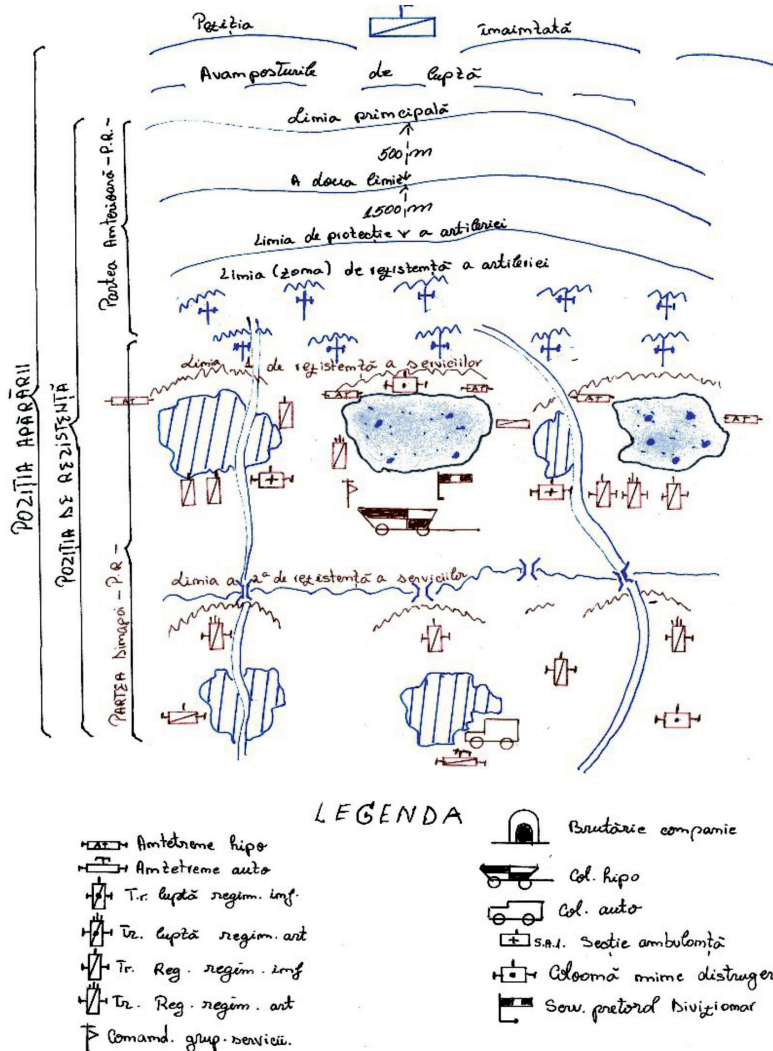 Poziția înaintată
Avamposturile de luptă
Linia principală
500 m
A doua linie
1500 m
Linia de protecție a artileriei
Linia (zona) de rezistență a artileriei
Linia 1 de rezistență a serviciilor
AT
AT
AT
AT
AT
Linia a 2ª de rezistență a serviciilor
POZIȚIA APĂRĂRII
POZIȚIA DE REZISTENȚĂ
Partea Anterioară - P.R. -
PARTEA Dinapoi - P.R. -
LEGENDA
AT Antetrene hipo
Antetrene auto
T.r. luptă regim. inf.
Tr. luptă regim. art
Tr. Reg. regim. inf
Tr. Reg. regim. art
Comand. grup. servicii.
Brutărie companie
Col. hipo
Col. auto
S.A.I. Secție ambulanță
Coloană mine distruger
Serv. pretoral Divizionar